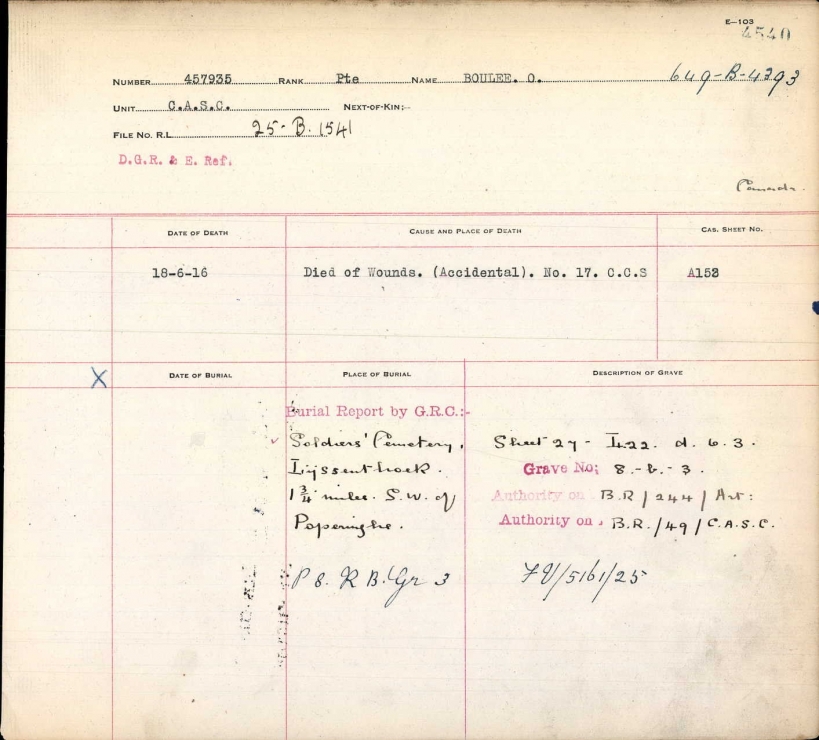 E—103
4540
NUMBER 457935 RANK Pte NAME BOULEE. O. 649-B-4393
UNIT C.A.S.C. NEXT-OF-KIN:—
FILE NO. R.L. 25-B.1541
D.G.R. & E. Ref.
Canada.
DATE OF DEATH CAUSE AND PLACE OF DEATH CAS. SHEET NO.
18-6-16 Died of Wounds. (Accidental). No. 17. C.C.S A153
X DATE OF BURIAL PLACE OF BURIAL DESCRIPTION OF GRAVE
Burial Report by G.R.C.:-
Soldiers' Cemetery, Sheet 27 - L.22. d. 6.3.
Lijssenthoek. Grave No; 8.-b.-3.
1¾ miles. S.W. of Authority on B.R/244/Art:
Poperinghe. Authority on B.R./49/C.A.S.C.
P 8. R B. Gr 3 FV/5161/25